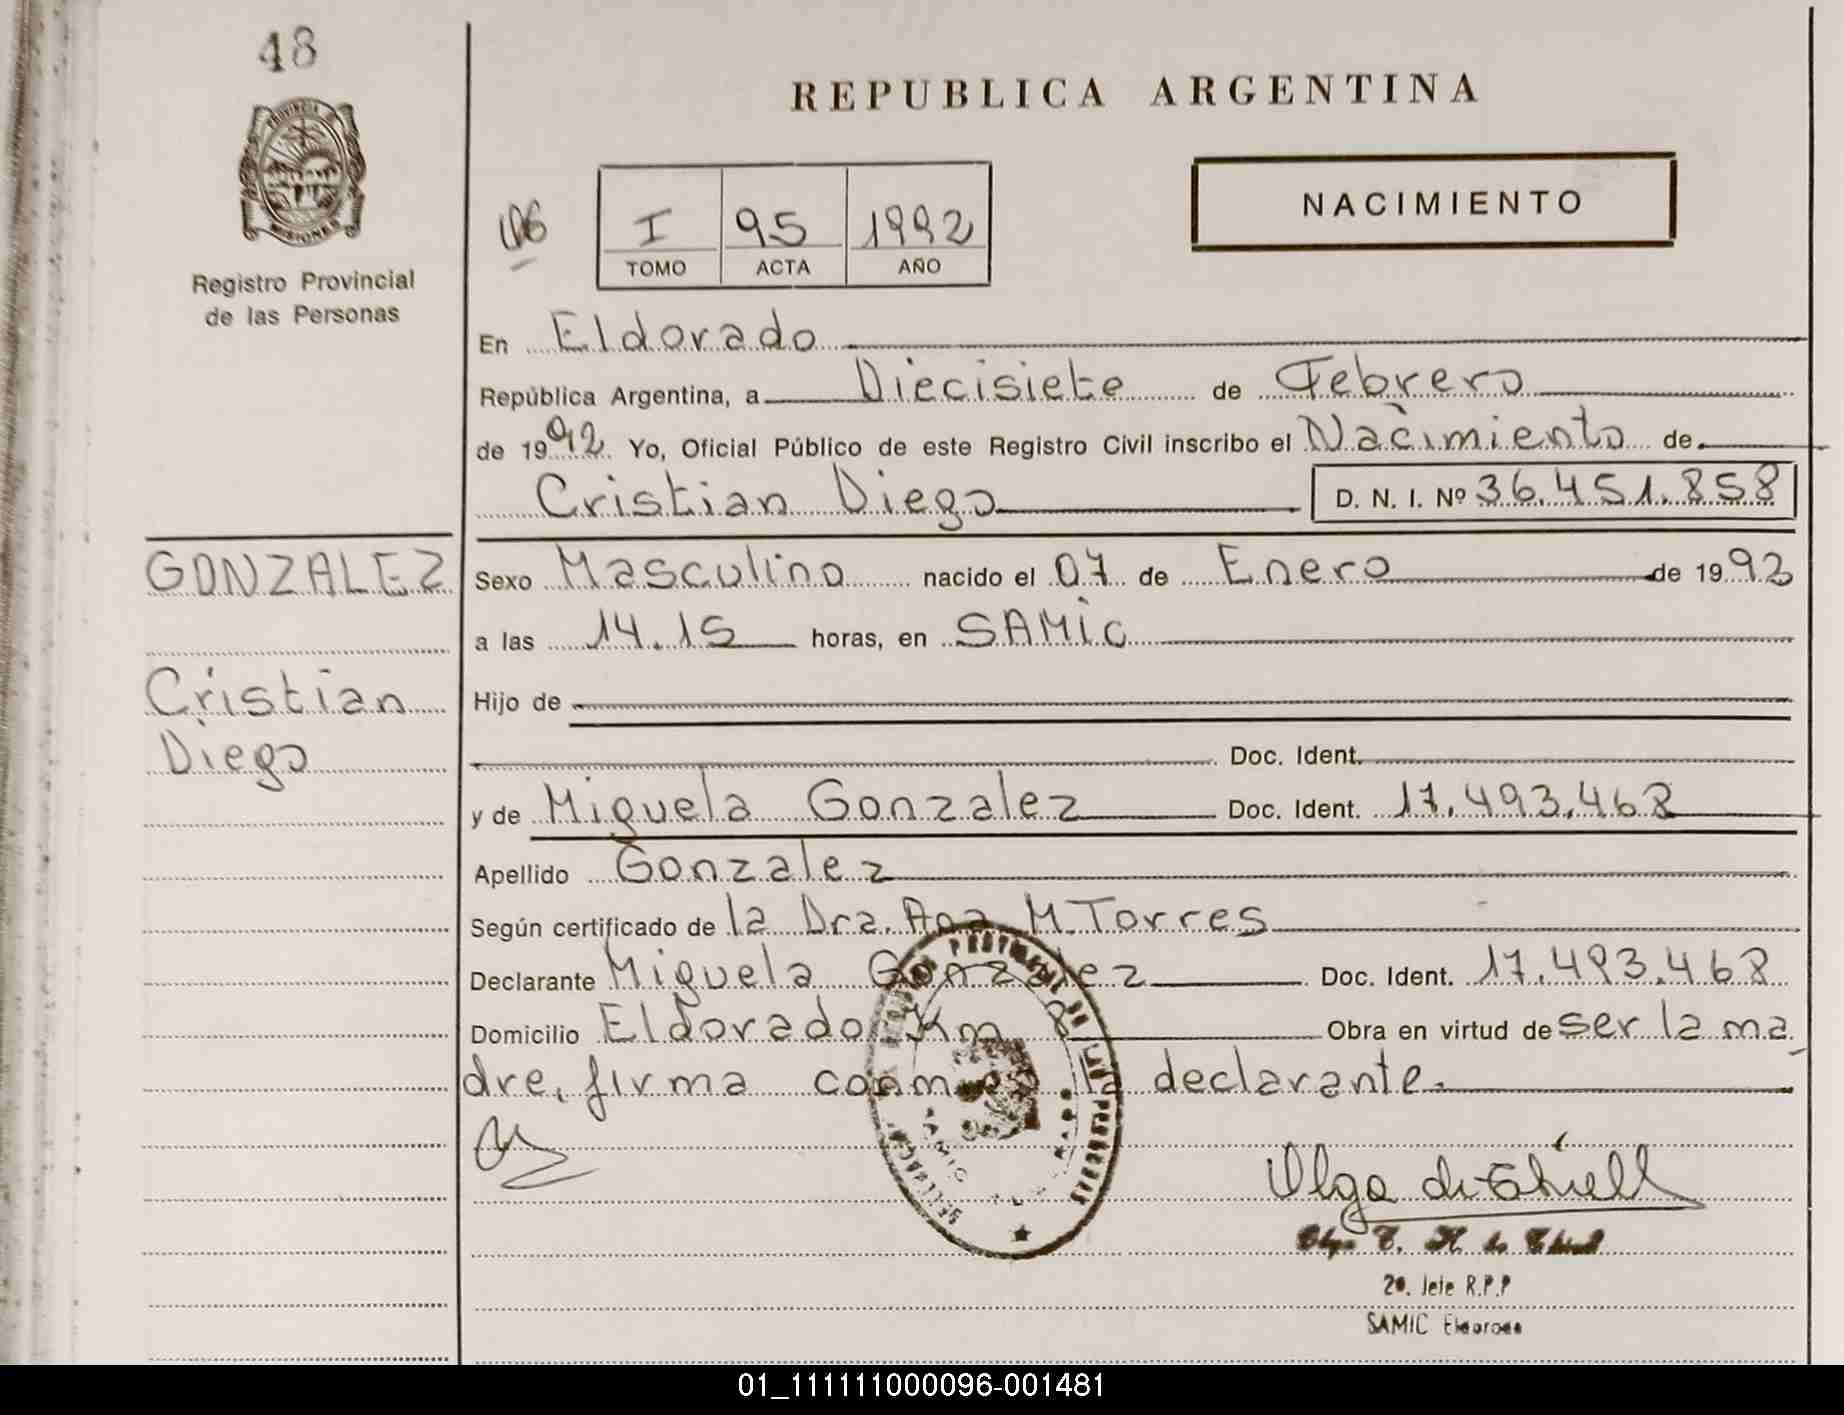 48
PROVINCIA DE
MISIONES
Registro Provincial
de las Personas
REPUBLICA ARGENTINA
NACIMIENTO
I 95 1992
TOMO ACTA AÑO
En Eldorado
República Argentina, a Diecisiete de Febrero
de 1992 Yo, Oficial Público de este Registro Civil inscribo el Nacimiento de
Cristian Diego D. N. I. Nº 36.451.858
GONZALEZ
Cristian
Diego
Sexo Masculino nacido el 07 de Enero de 1992
a las 14.15 horas, en SAMiC
Hijo de
Doc. Ident.
y de Miguela Gonzalez Doc. Ident. 17.493.468
Apellido Gonzalez
Según certificado de la Dra. Ana M. Torres
Declarante Miguela Gonzalez Doc. Ident. 17.493.468
Domicilio Eldorado Km 8 Obra en virtud de ser la ma
dre, firma conmigo la declarante.
Olga de Thiell
Olga T. H. de Thiell
2º. Jefe R.P.P
SAMIC Eldorado
01_111111000096-001481